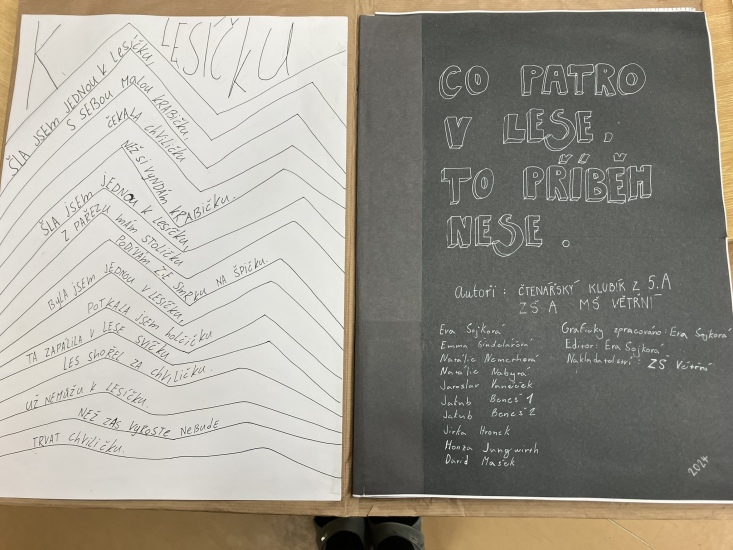 K LESÍČKU
ŠLA JSEM JEDNOU K LESÍČKU,
S SEBOU MALOU KRABIČKU,
ČEKALA CHVILIČKU
NEŽ SI VYNDÁM KRABIČKU.
ŠLA JSEM JEDNOU K LESÍČKU,
Z PAŘEZU MÁM STOLIČKU
PODÍVÁM ZE SMRKU NA ŠPIČKU.
BYLA JSEM JEDNOU V LESÍČKU,
POTKALA JSEM HOLČIČKU
TA ZAPÁLILA V LESE SVÍČKU
LES SHOŘEL ZA CHVILIČKU.
UŽ NEMŮŽU K LESÍČKU.
NEŽ ZAS VYROSTE NEBUDE
TRVAT CHVILIČKU.
CO PATRO
V LESE,
TO PŘÍBĚH
NESE.
Autoři: ČTENÁŘSKÝ KLUBÍK Z 5.A
ZŠ A MŠ VĚTŘNÍ
Eva Sojková
Emma Šindelářová
Natálie Nemethová
Natálie Nabytá
Jaroslav Vaněček
Jakub Beneš 1
Jakub Beneš 2
Jirka Hronek
Honza Jungwirth
David Mašek
Graficky zpracováno: Eva Sojková
Editor: Eva Sojková
Nakladatelství: ZŠ Větřní
2024